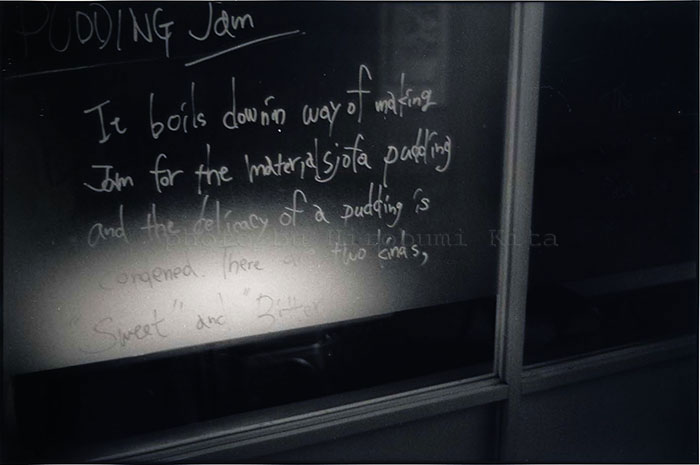 PUDDING Jam
It boils down in way of making
Jam for the materials of a pudding
and the delicacy of a pudding is
There two kinds,
"Sweet" and "Bitter
Photo by Hirobumi Kita